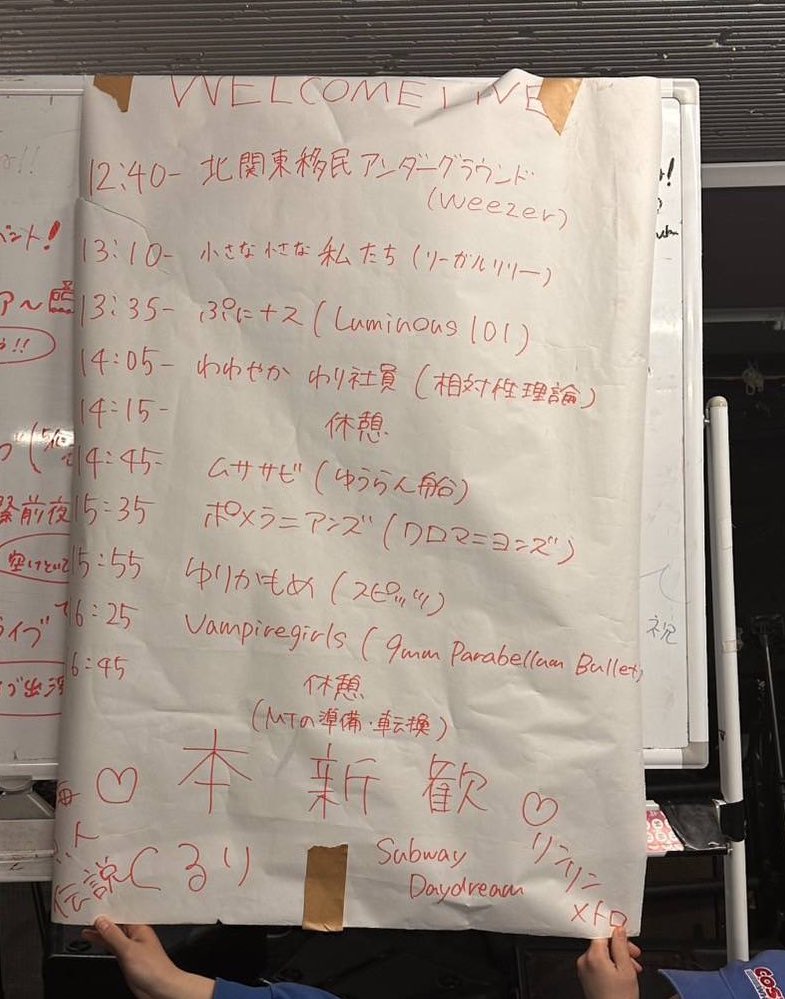 WELCOME LIVE
12:40- 北関東移民アンダーグラウンド
(weezer)
13:10- 小さな小さな私たち (リーガルリリー)
13:35- ぷにナス (Luminous 101)
14:05- わわやか わり社員 (相対性理論)
14:15- 休憩
14:45- ムササビ (ゆうらん船)
15:35 ポメラニアンズ (クロマニヨンズ)
15:55 ゆりかもめ (スピッツ)
6:25 Vampiregirls (9mm Parabellum Bullet)
6:45 休憩
(MTの準備・転換)
♡ 本 新 歓 ♡
伝説 くるり
Subway
Daydream
リンリン
メトロ
ベント!
ア〜
!!
緊前夜
空けといて
ライブ
祝